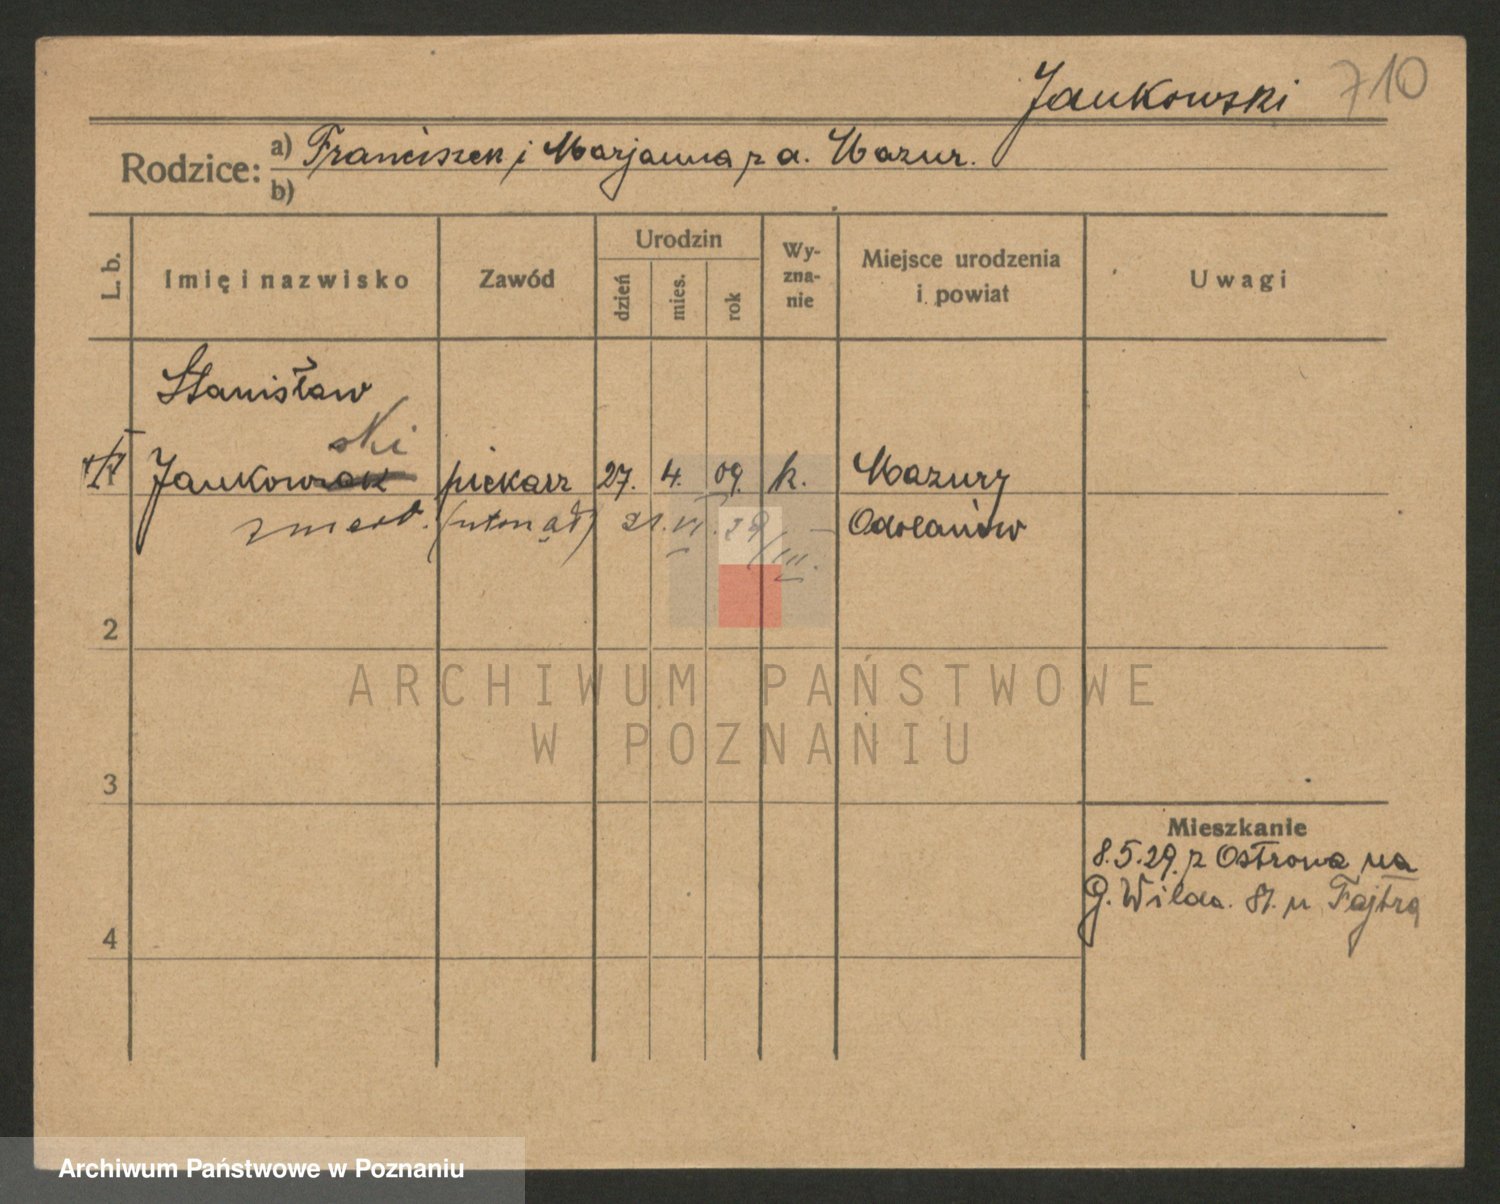 Jankowski 710
Rodzice: a) Franciszek i Marjanna z d. Mazur.
b)
L. b.
Imię i nazwisko
Zawód
Urodzin
dzień
mies.
rok
Wy-
zna-
nie
Miejsce urodzenia
i powiat
Uwagi
Stanisław
ski
Jankowiak piekarz 27. 4. 09. k. Mazury
zmarł. (utonął) 21. VI. 29 / III. Odolanów
2
3
4
Mieszkanie
8.5.29. z Ostrowa na
G. Wilda. 81. u Fajtra
ARCHIWUM PAŃSTWOWE
W POZNANIU
Archiwum Państwowe w Poznaniu